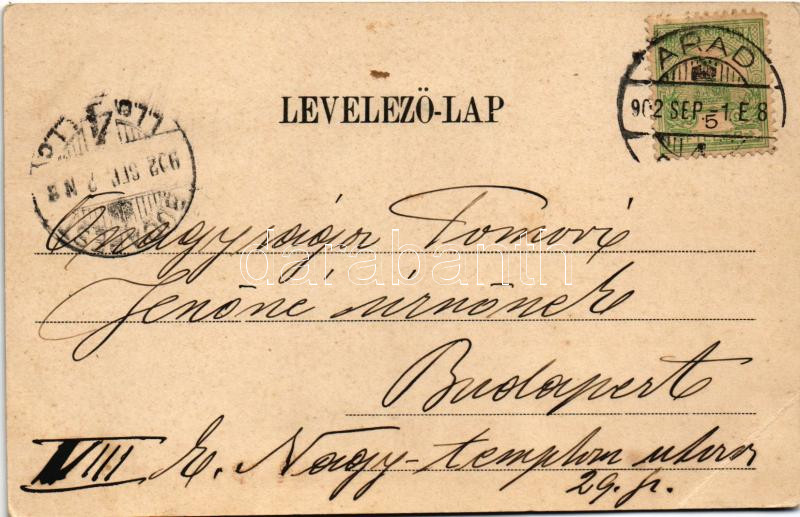 LEVELEZŐ-LAP
ARAD
902 SEP.-1.E 8
5
902 SEP. 2 N 8
Őnagysága Tomović
Jenőné úrnőnek
Budapest
VIII K. Nagy-templom utca
29. sz.
darabanth